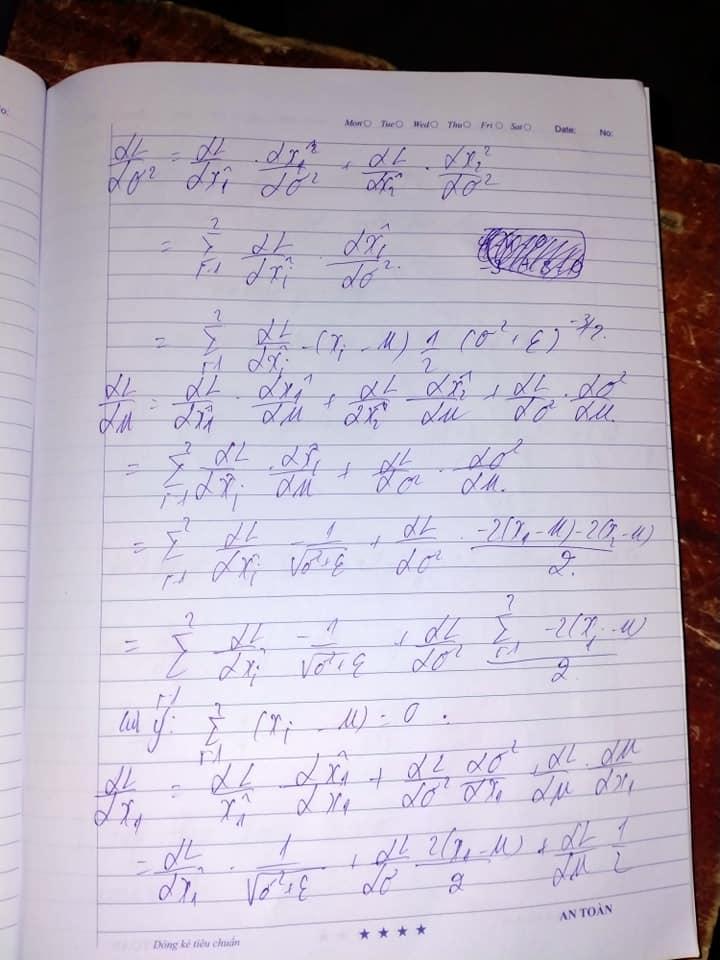 o:
Mon Tue Wed Thu Fri Sat Date: No:
dL/dσ² = dL/dx̂₁ · dx̂₁/dσ² + dL/dx̂₂ · dx̂₂/dσ²
= Σ_{i=1}^{2} dL/dx̂ᵢ · dx̂ᵢ/dσ²
= Σ_{i=1}^{2} dL/dx̂ᵢ - (xᵢ - μ) 1/2 (σ² + ε)^{-3/2}
dL/dμ = dL/dx̂₁ · dx̂₁/dμ + dL/dx̂₂ dx̂₂/dμ + dL/dσ² · dσ²/dμ
= Σ_{i=1}^{2} dL/dx̂ᵢ · dx̂ᵢ/dμ + dL/dσ² · dσ²/dμ
= Σ_{i=1}^{2} dL/dx̂ᵢ -1/√(σ²+ε) + dL/dσ² · (-2(x₁-μ)-2(x₂-μ))/2
= Σ_{i=1}^{2} dL/dx̂ᵢ -1/√(σ²+ε) + dL/dσ² (Σ_{i=1}^{2} -2(xᵢ-μ))/2
lưu ý: Σ_{i=1}^{2} (xᵢ - μ) = 0 .
dL/dx₁ = dL/x̂₁ · dx̂₁/dx₁ + dL/dσ² dσ²/dx₁ + dL/dμ · dμ/dx₁
= dL/dx̂₁ · 1/√(σ²+ε) + dL/dσ 2(x₁-μ)/2 + dL/dμ 1/2
Dòng kẻ tiêu chuẩn ★ ★ ★ ★ AN TOÀN